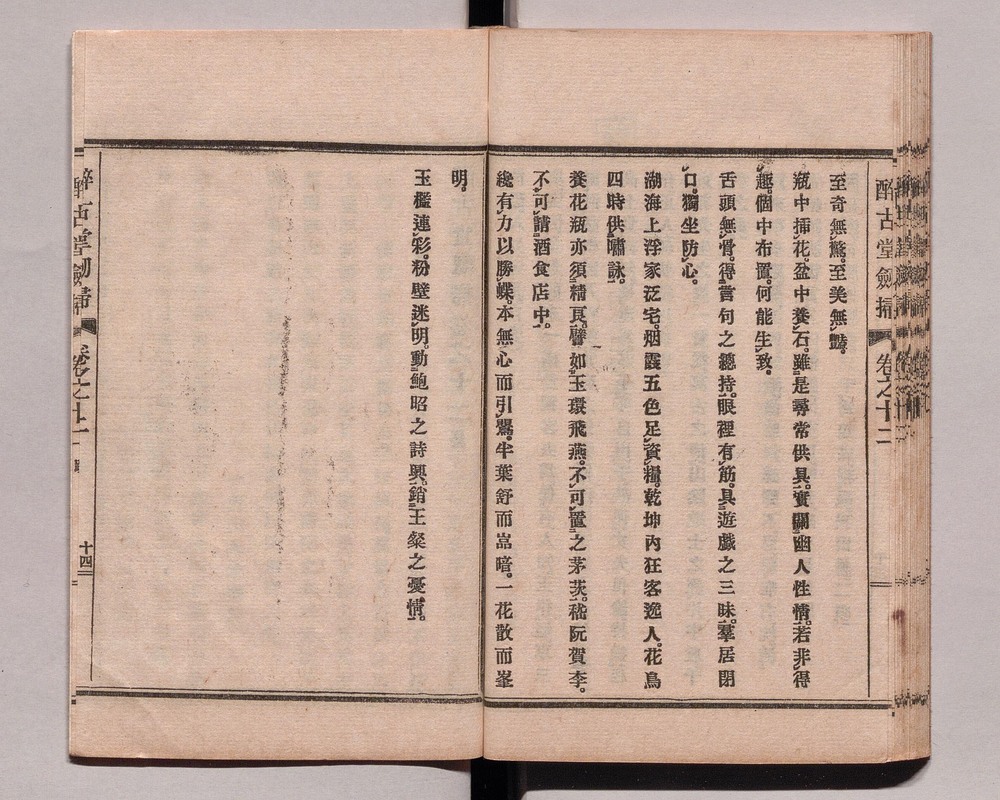 醉古堂劍掃 卷之十二
至奇無驚。至美無豔。
瓶中揷花。盆中養石。雖是尋常供具。實關幽人性情。若非得
趣。個中布置。何能生致。
舌頭無骨。得言句之總持。眼裡有筋。具遊戲之三昧。羣居閉
口。獨坐防心。
湖海上浮家泛宅。烟霞五色足資糧。乾坤內狂客逸人。花鳥
四時供嘯詠。
養花瓶亦須精良。譬如玉環飛燕。不可置之茅茨。嵇阮賀李。
不可請酒食店中。
纔有力以勝蝶。本無心而引鶯。半葉舒而嵓暗。一花散而峯
明。
玉檻連彩。粉壁迷明。動鮑昭之詩興。銷王粲之憂情。
醉古堂劍掃 卷之十二 十四